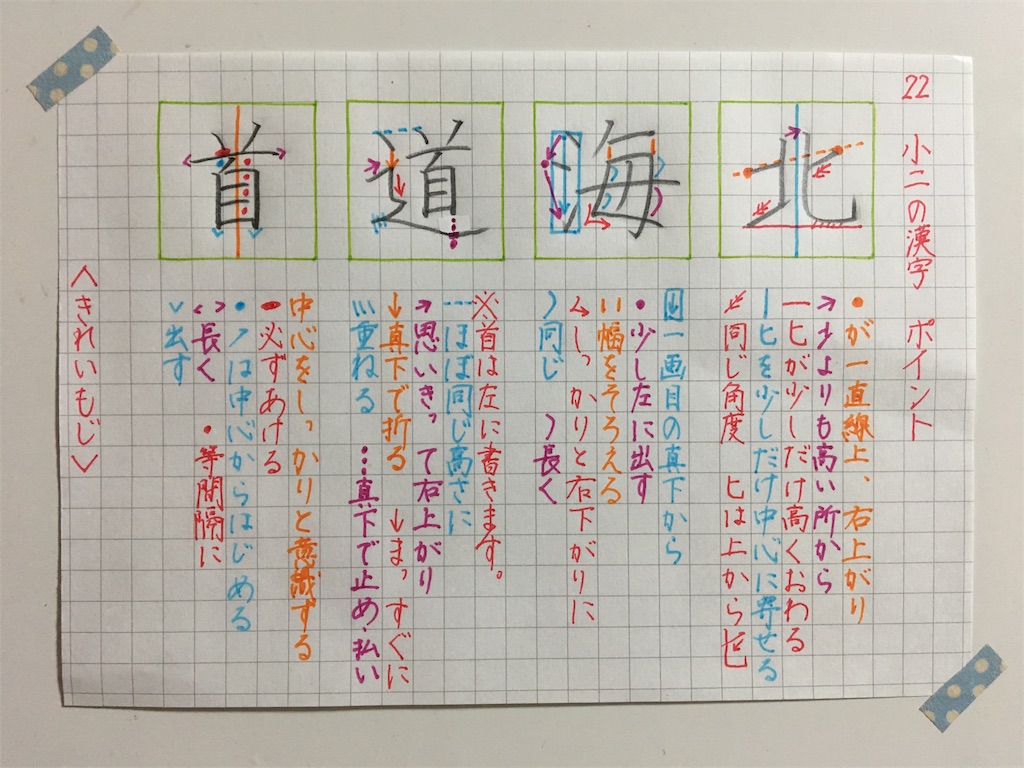 22 小二の漢字 ポイント
北
・が一直線上、右上がり
→よりも高い所から
一ヒが少しだけ高くおわる
|ヒを少しだけ中心に寄せる
同じ角度 ヒは上から
海
一画目の真下から
・少し左に出す
幅をそろえる
しっかりと右下がりに
)同じ )長く
道
※首は左に書きます。
---ほぼ同じ高さに
→思いきって右上がり
↓真下で折る ↓まっすぐに
重ねる …真下で止め・払い
首
中心をしっかりと意識する
必ずあける
・ノは中心からはじめる
<>長く ・等間隔に
∨出す
<きれいもじ>